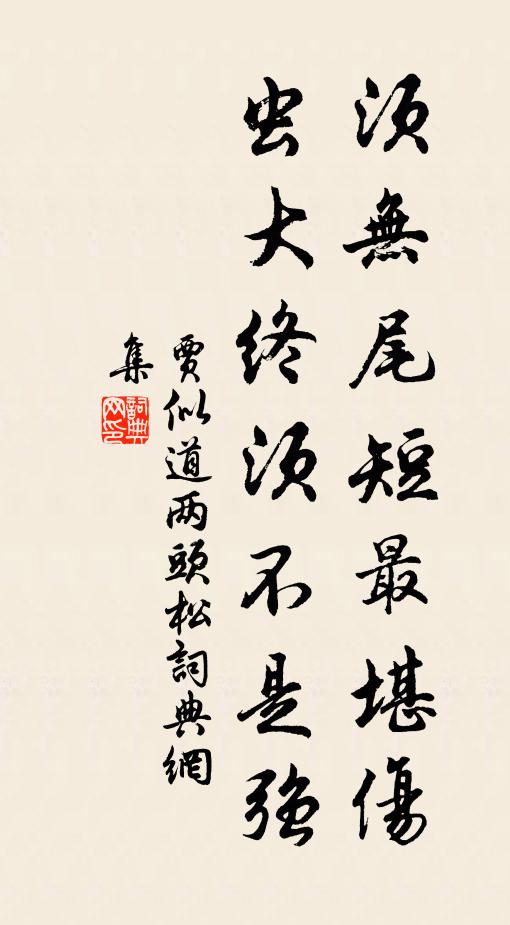 須無尾短最堪傷
虫大終須不是強
賈似道两頭松詞典網
集
詞典网印